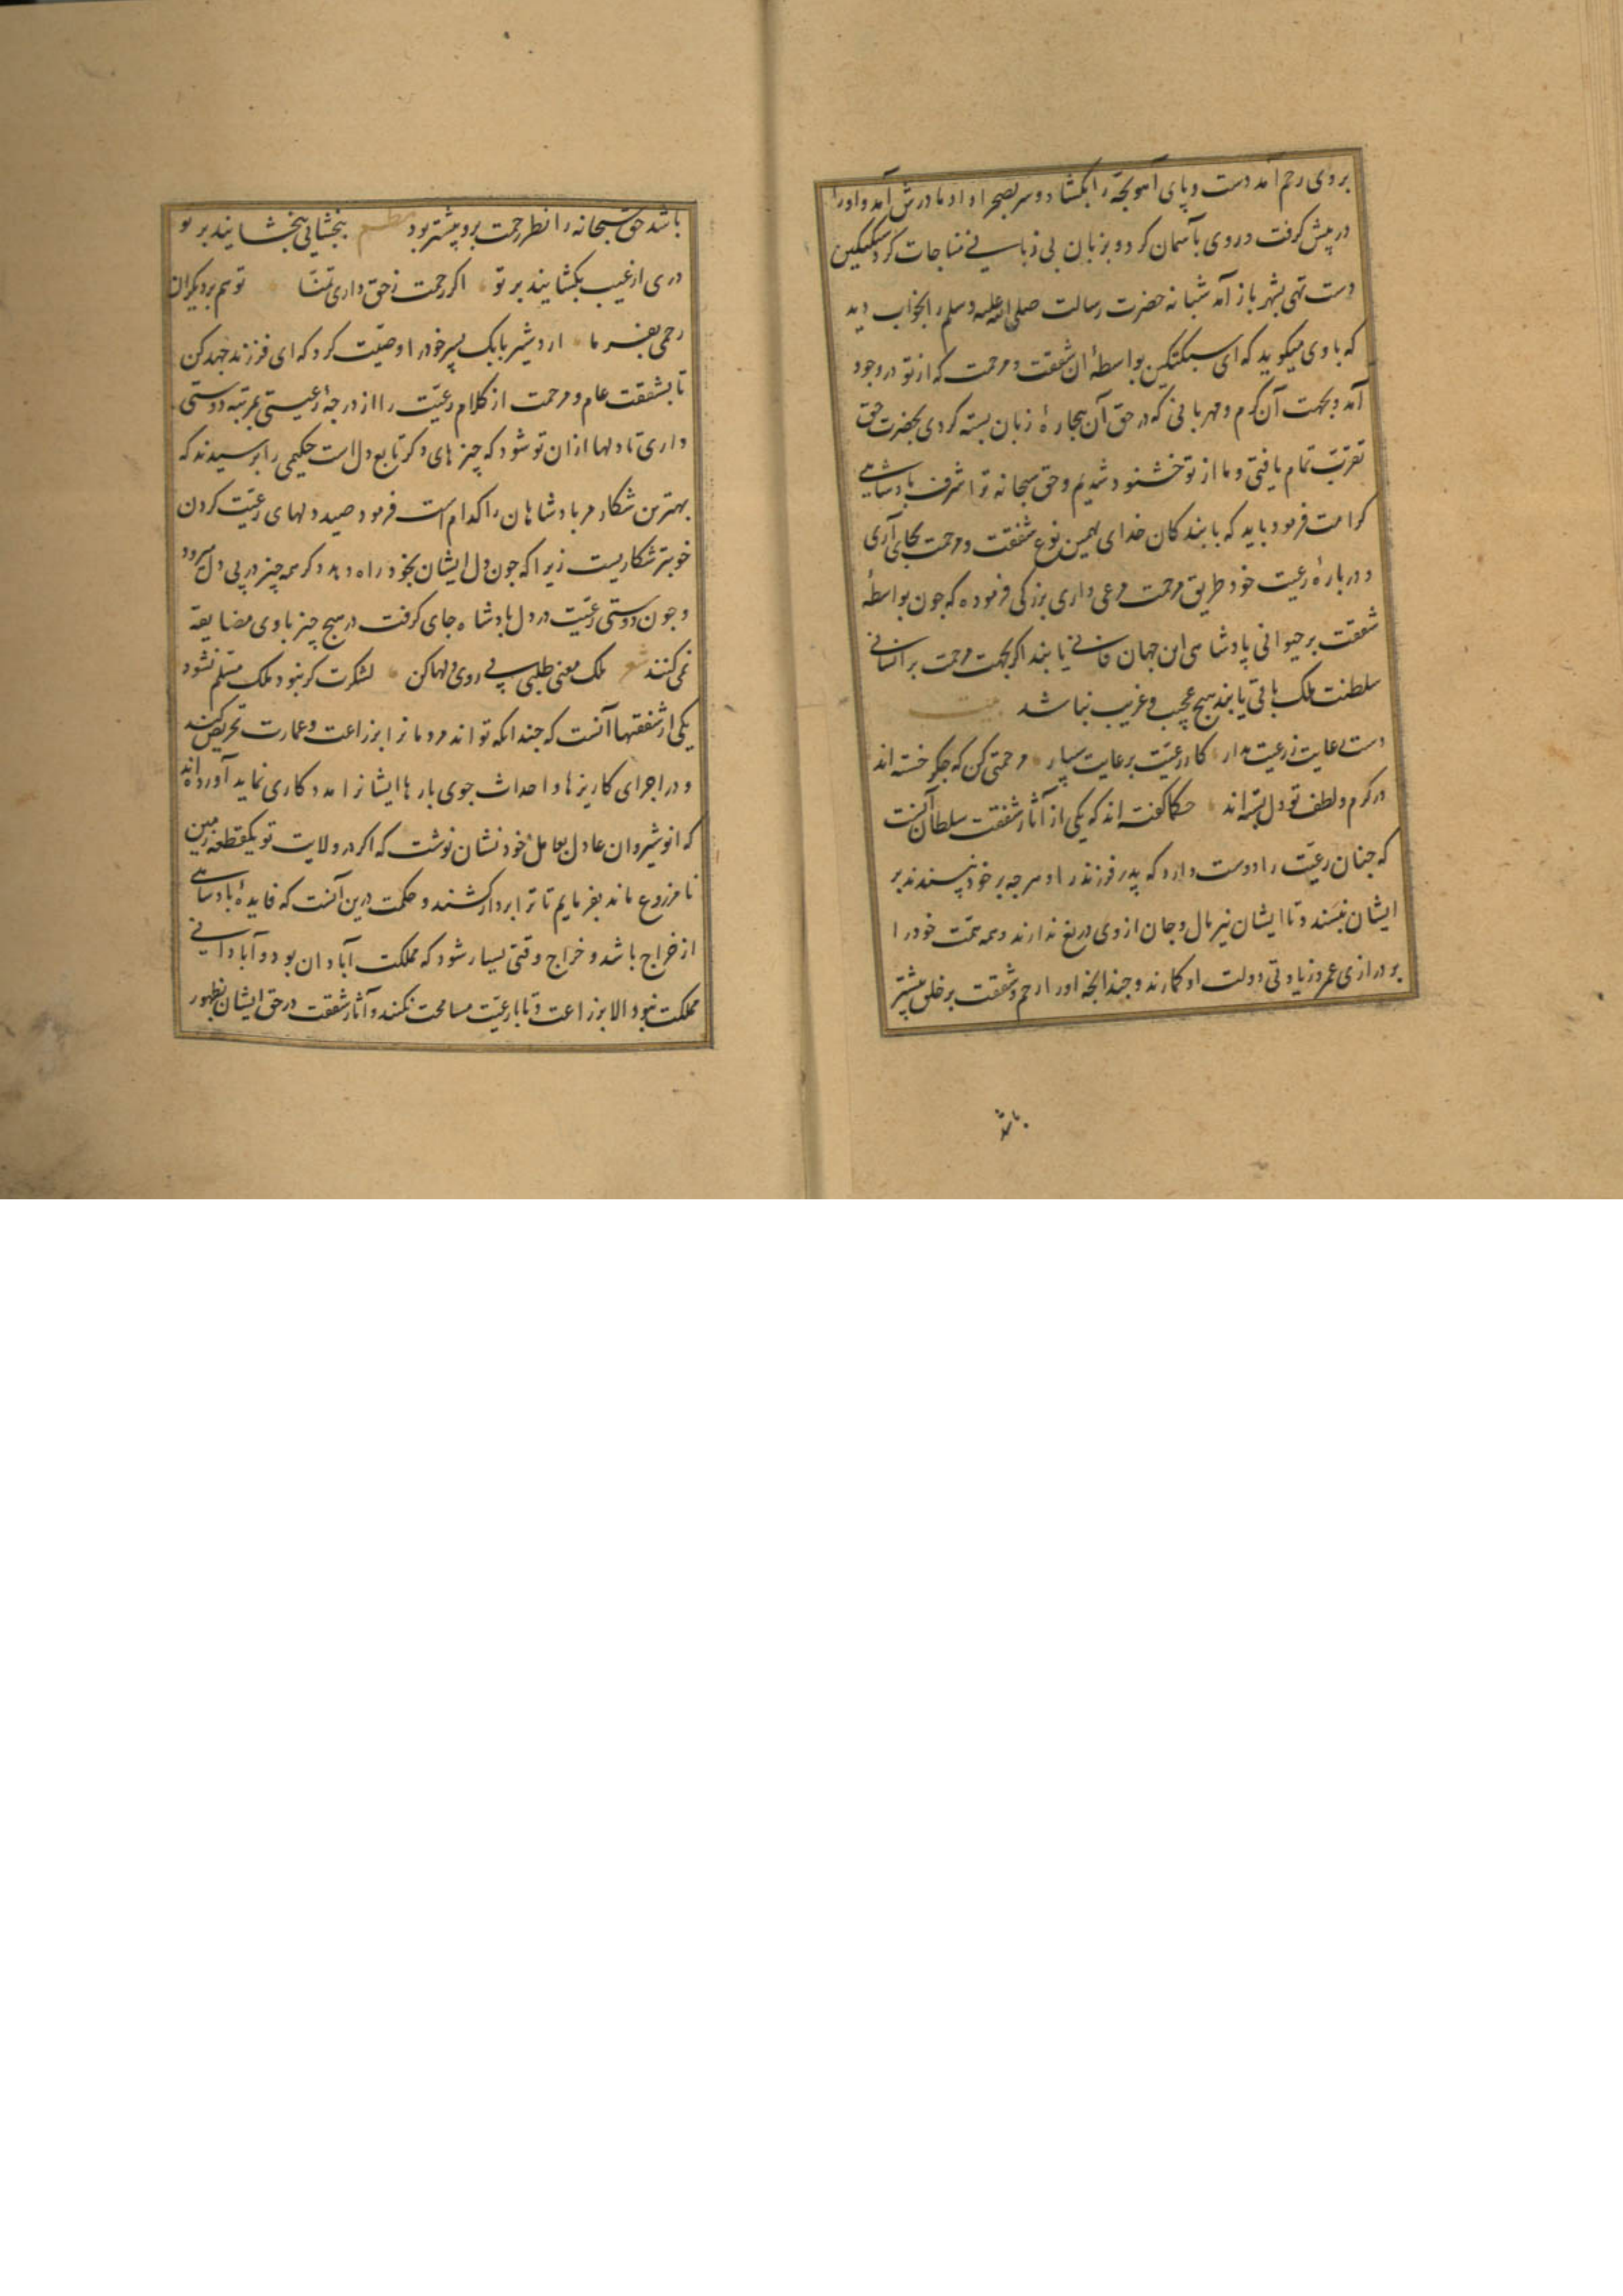 بروی رحم آمد دست و پای آهو بچه را بکشاد و سر بصحرا داد مادرش آمد و او را
در پیش کرفت و روی بآسمان کرد و بزبان بی زبانی مناجات کرد سبکتکین
دست تهی بشهر باز آمد شبانه حضرت رسالت صلی الله علیه وسلم را بخواب دید
که با وی میکوید که ای سبکتکین بواسطهٔ ان شفقت و مرحمت که از تو در وجود
آمد و بجهت آن کرم و مهربانی که در حق آن بیچارهٔ زبان بسته کردی بحضرت حق
تقرب تمام یافتی و ما از تو خشنود شدیم و حق سبحانه ترا شرف پادشاهی
کرامت فرمود باید که با بندکان خدای همین نوع شفقت و مرحمت بجای آری
و دربارهٔ رعیت خود طریق مرحمت مرعی داری بزرکی فرموده که چون بواسطهٔ
شفقت بر حیوانی پادشاهی این جهان فانی یابند اکر بجهت مرحمت بر انسانی
سلطنت ملک باقی یابند هیچ عجیب و غریب نباشد بیت
دست رعایت ز رعیت مدار کار رعیت برعایت سپار مرحمتی کن که جکر خسته اند
در کرم و لطف تو دل بسته اند حکما کفته اند که یکی از آثار شفقت سلطان آنست
که جنان رعیت را دوست دارد که پدر فرزند را و هرجه بر خود نپسندد بر
ایشان نپسندد تا ایشان نیز مال و جان از وی دریغ ندارند و همه همت خود را
بر درازی عمر و زیادتی دولت او کمارند و جندانجه او را رحم و شفقت بر خلق بیشتر
باشد
باشد حق سبحانه را نظر رحمت برو بیشتر بود نظم ببخشای ببخشایند بر تو
دری از غیب بکشایند بر تو اکر رحمت ز حق داری تمنا تو هم بر دیکران
رحمی بفرما اردشیر بابک پسر خود را وصیت کرد که ای فرزند جهد کن
تا بشفقت عام و مرحمت از کلام رعیت را از درجهٔ رعیتی بمرتبه دوستی
داری تا دلها ازان تو شود که چیزهای دکر تابع دل است حکیمی را پرسیدند که
بهترین شکار مر پادشاهان را کدام است فرمود صید دلهای رعیت کردن
خوبتر شکاریست زیرا که جون دل ایشان بخود راه دهد دکر همه چیز در پی دل میرود
و جون دوستی رعیت در دل پادشاه جای کرفت در هیچ چیز با وی مضایقه
نمی کنند شعر ملک معنی طلبی پی روی دلها کن لشکرت کر نبود ملک مسلم نشود
یکی از شفقتها آنست که جندانکه تواند مردمانرا بزراعت و عمارت تحریص کند
و در اجرای کاریزها و احداث جوی بارها ایشانرا مددکاری نماید آورده اند
که انوشیروان عادل بعامل خود نشان نوشت که اکر در ولایت تو یکقطعه زمین
نامزروع ماند بفرمایم تا ترا بردار کشند و حکمت درین آنست که فایدهٔ پادشاهی
از خراج باشد و خراج وقتی بسیار شود که مملکت آبادان بود و آبادانی
مملکت نبود الا بزراعت و تا با رعیت مسامحت نکنند و آثار شفقت در حق ایشان بظهور